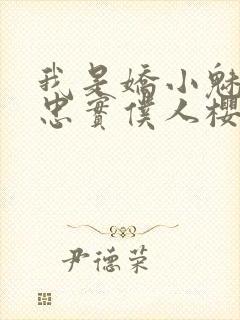 我是嬌小魅
忠實僕人櫻
尹德荣